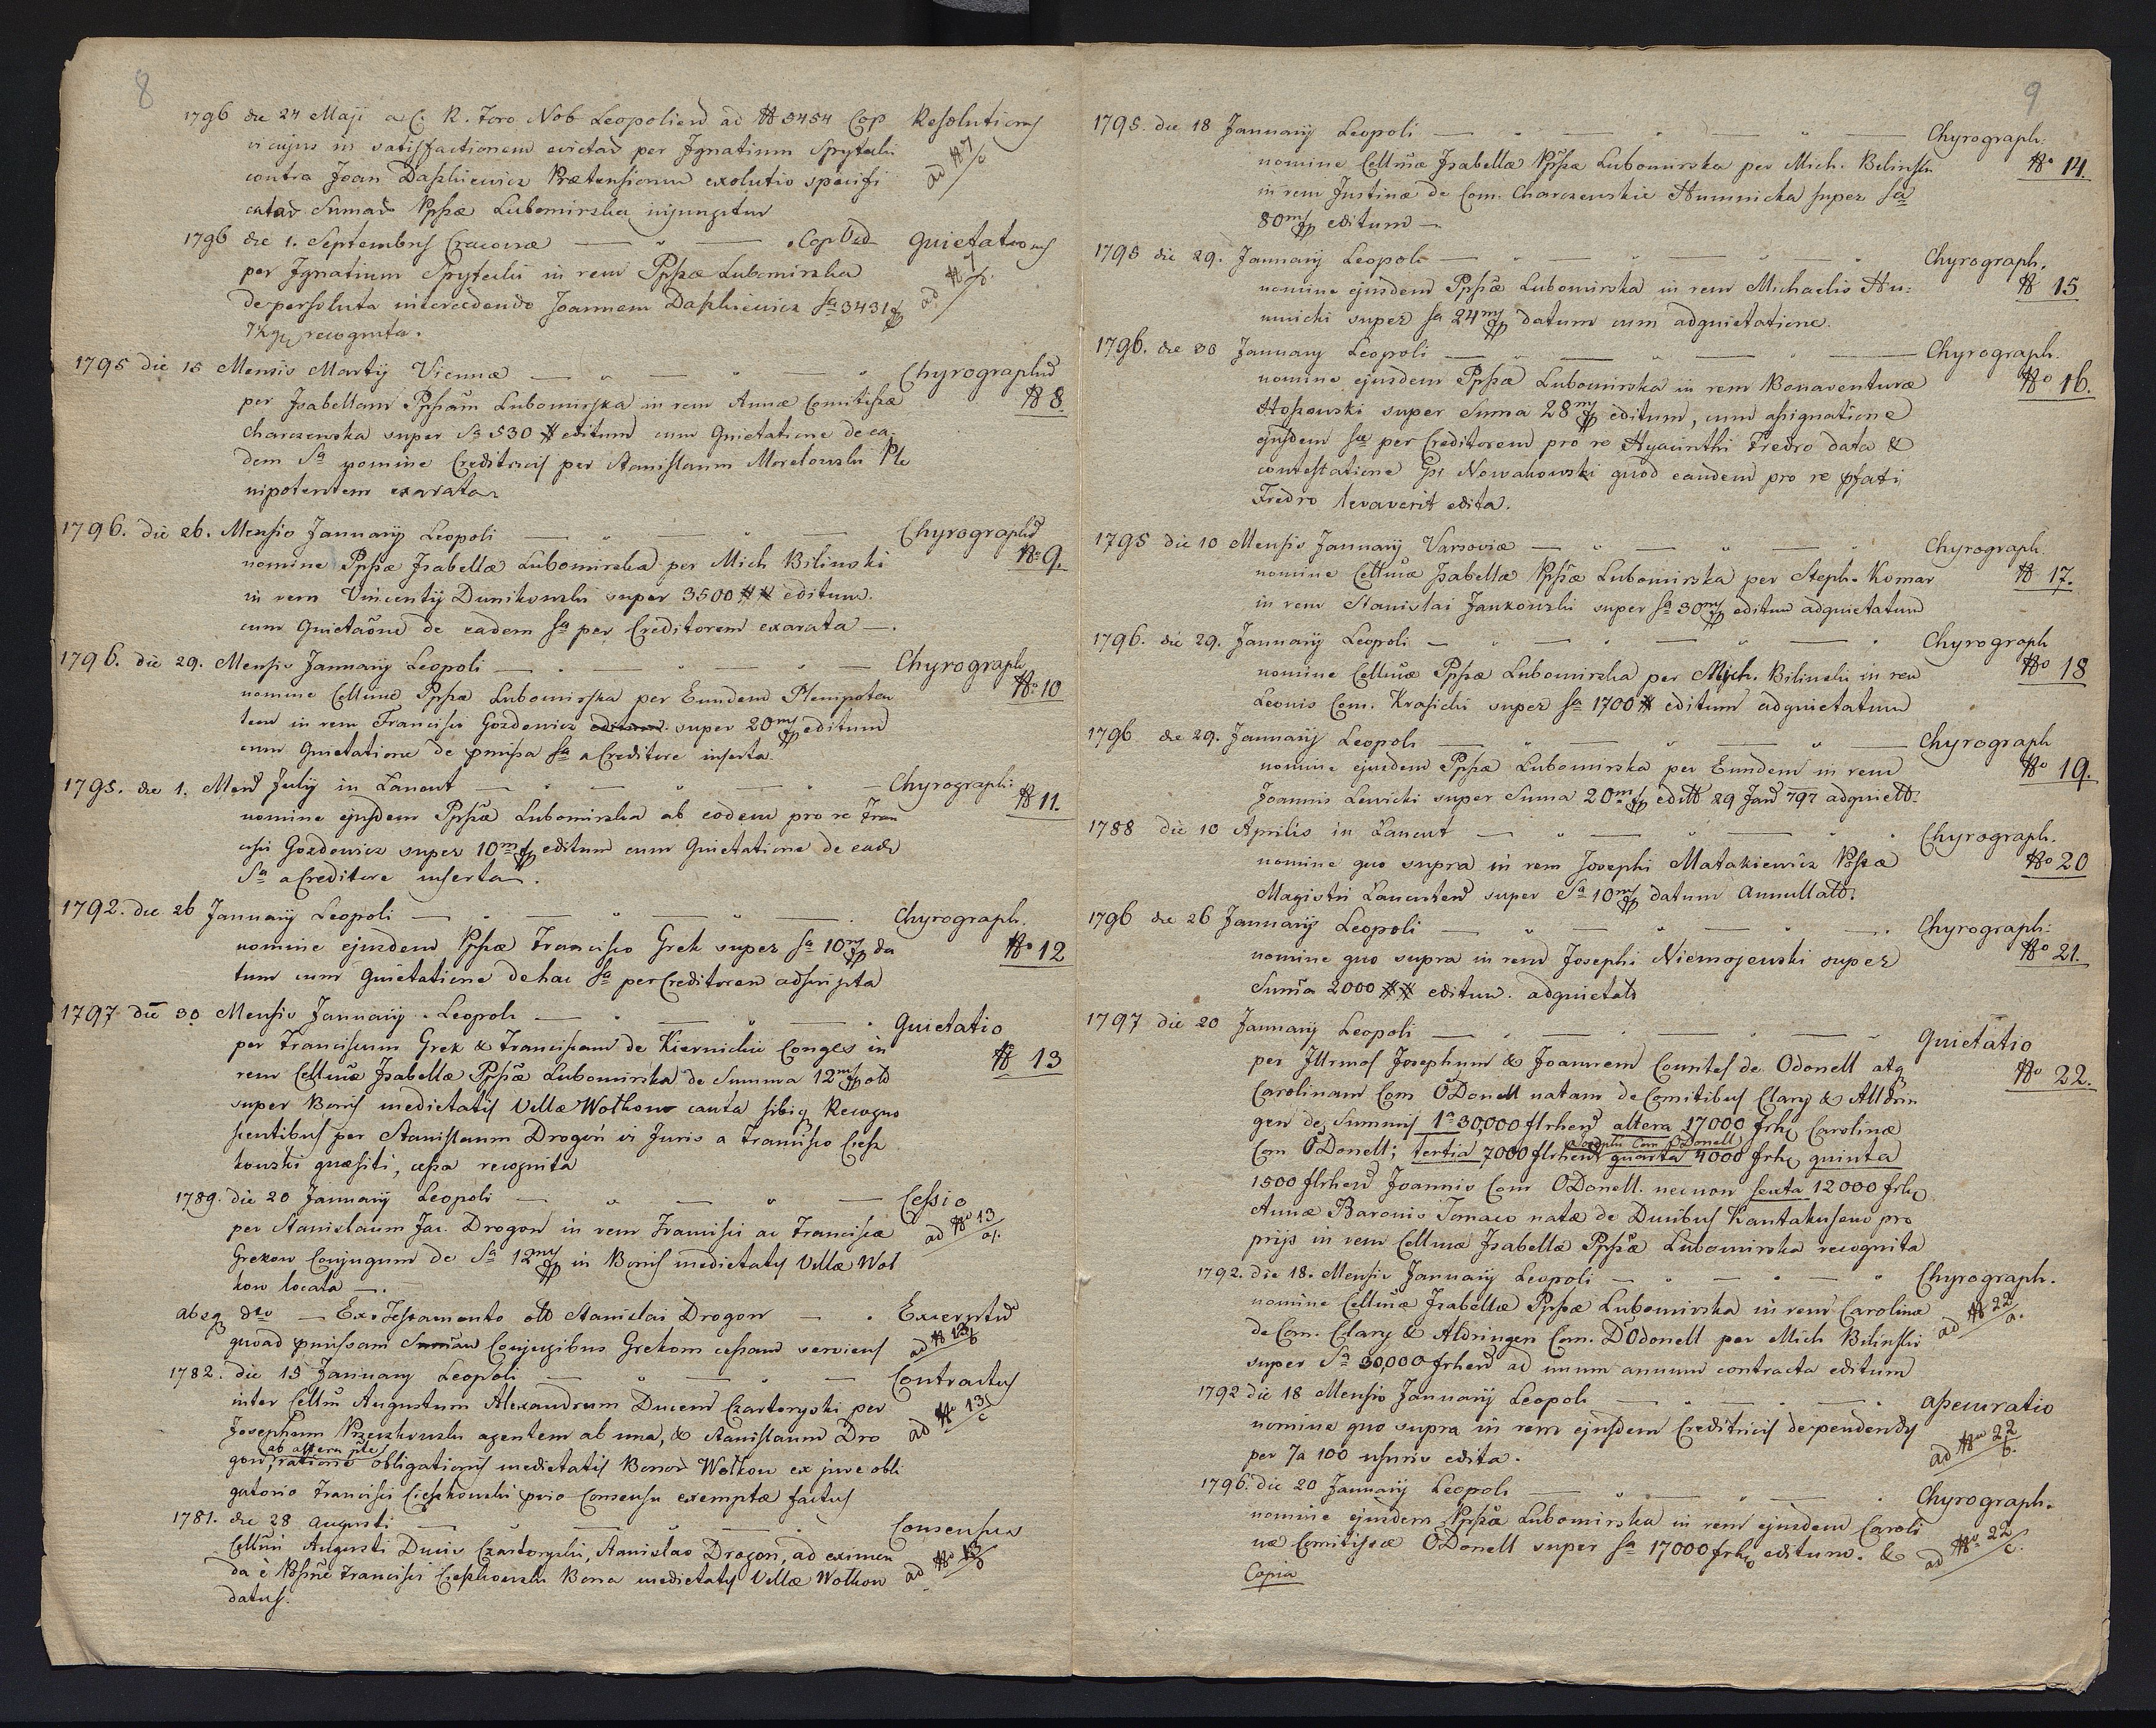 8
1796 die 24 Maji a C. R. Foro Nob Leopoliend ad № 5454 Cop Resolutionis
vi cujus in satisfactionem evictar per Ignatium Spytecki ad № 7
contra Joan Daszkiewicz Prætensionum exolutio specifi
catar Sumar Ppssæ Lubomirska injungitur
1796 die 1. Septembris Cracoviæ — " — Cop Vid Quietationis
per Ignatium Spytecki in rem Ppssæ Lubomirska ad № 7
de persoluta intercedendo Joannem Daszkiewicz Sa 3431
recognita.
1795 die 15 Mensis Martij Viennæ — " — " — " Chyrographũ
per Isabellam Ppssam Lubomirska in rem Annæ Comitissæ № 8.
Charczewska super Sa 530 # editum cum Quietatione de ea-
dem Sa nomine Creditricis per Stanislaum Morelowski Ple
nipotentem exarata
1796. die 26. Mensis Januarij Leopoli — " — " — Chyrographũ
nomine Ppssæ Isabellæ Lubomirska per Mich Bilinski № 9.
in rem Vincentij Dunikowski super 3500 ## editum.
cum Quietaõne de eadem Sa per Creditorem exarata —.
1796. die 29. Mensis Januarij Leopoli — " — " — " — Chyrograph
nomine Cellmæ Ppssæ Lubomirska per Eundem Plenipoten № 10
tem in rem Francisci Gozdowicz editum super 20 m/fp editum
cum Quietatione de pmissa Sa a Creditore inserta.
1795. die 1. Mens July in Lancut — " — " — " — Chyrograph:
nomine ejusdem Ppssæ Lubomirska ab eodem pro re Fran № 11.
cisci Gozdowicz super 10 m/fp editum cum Quietatione de eade
Sa a Creditore inserta.
1792. die 26 Januarij Leopoli — " — " — " —. Chyrograph.
nomine ejusdem Ppssæ Francisco Grek super Sa 10 m/fp da № 12
tum cum Quietatione de hac Sa per Creditorem adscripta
1797 die 30 Mensis Januarij Leopoli — " — " — . Quietatio
per Franciscum Grek & Franciscam de Kiernickie Conges in № 13
rem Cellmæ Isabellæ Ppssæ Lubomirska de Summa 12 m/fp olt
super Bonis medietatis Villæ Wolkow cauta sibiq Recogno
scentibus per Stanislaum Drogoń vi Juris a Francisco Ciesz
kowski quæsiti, cessa recognita
1789. die 20 Januarij Leopoli — " — " — Cessio
per Stanislaum Jac. Drogoń in rem Francisci ac Franciscæ ad № 13/a.
Grekow Conjugum de Sa 12 m/fp in Bonis medietatis Villæ Wol
kow locata —.
absq dto — Ex Testamento olt Stanislai Drogoń — . Excerptũ
quoad pmissam Sumam Conjugibus Grekom cessam serviens ad № 13/b
1782. die 15 Januarij Leopoli — " — " — Contractus
inter Cellm Augustum Alexandrum Ducem Czartoryski per ad № 13/c
Josephum Przeczkowski agentem ab una, & Stanislaum Dro
ab altera pte
gon, ratione obligationis medietatis Bonor Wolkow ex jure obli
gatorio Francisci Cieszkowski pvio Consensu exemptæ factus
1781. die 28 Augusti — " — " — . Consensus
Cellmi Augusti Ducis Czartoryski, Stanislao Drogoń, ad eximen ad № 13/d
da è Pssne Francisci Cieszkowski Bona medietatis Villæ Wolkow
datus.
9
1795. die 18 Januarij Leopoli — " — " — " — Chyrograph.
nomine Cellmæ Isabellæ Ppssæ Lubomirska per Mich. Bilinski № 14.
in rem Justinæ de Com. Charczewskie Humnicka super Sa
80 m/fp editum —
1795 die 29. Januarij Leopoli — " — " — " Chyrograph.
nomine ejusdem Ppssæ Lubomirska in rem Michaelis Hu- № 15
mnicki super Sa 24 m/fp datum cum adquietatione.
1796. die 30 Januarij Leopoli — " — " — " — Chyrograph.
nomine ejusdem Ppssæ Lubomirska in rem Bonaventuræ № 16.
Hoszowski super Suma 28 m/fp editum, cum assignatione
ejusdem Sæ per Creditorem pro re Hyacinthi Fredro data &
contestatione Gsi Nowakowski quod eandem pro re pfati
Fredro levaverit edita.
1795 die 10 Mensis Januarij Varsoviæ — " — " — " Chyrograph.
nomine Cellmæ Isabellæ Ppssæ Lubomirska per Steph. Komar № 17.
in rem Stanislai Jankowski super Sa 30 m/fp editum adquietatum
1796. die 29. Januarij Leopoli — " — " — " — . Chyrograph
nomine Cellmæ Ppssæ Lubomirska per Mich. Bilinski in rem № 18
Leonis Com. Krasicki super Sa 1700 # editum adquietatum
1796 die 29. Januarij Leopoli — " — " — " — Chyrograph
nomine ejusdem Ppssæ Lubomirska per Eundem in rem № 19.
Joannis Lewicki super Suma 20 m/fp editt 29 Jan 797 adquiett.
1788 die 10 Aprilis in Lancut — " — " — . Chyrograph.
nomine quo supra in rem Josephi Matakiewicz Pssæ № 20
Magistri Lancuten super Sa 10 m/fp datum Annullatt.
1796 die 26 Januarij Leopoli — " — " — " —. Chyrograph:
nomine quo supra in rem Josephi Niemojewski super № 21.
Suma 2000 ## editum. adquietatt
1797 die 20 Januarij Leopoli — " — " — " — " Quietatio
per Illrmos Josephum & Joannem Comites de Odonell atq № 22.
Carolinam Com ODonell natam de Comitibus Clary & Alldrin
gen de Summis 1a 30,000 flrhen altera 17000 frh Carolinæ
Josephi Com ODonell
Com ODonell; tertia 7000 flrhen quarta 4000 frh quinta
1500 flrhen Joannis Com ODonell. necnon sexta 12000 frh
Annæ Baronis Tomaco natæ de Ducibus Kantakusen pro
prijs in rem Cellmæ Isabellæ Ppssæ Lubomirska recognita
1792. die 18. Mensis Januarij Leopoli — " — " — " Chyrograph.
nomine Cellmæ Isabellæ Ppssæ Lubomirska in rem Carolinæ ad № 22/a.
de Com. Clary & Aldringen Com. DOdonell per Mich Bilinski
super Sa 30,000 frhen ad unum annum contracta editum
1792 die 18 Mensis Januarij Leopoli — " — " — . Assecuratio
nomine quo supra in rem ejusdem Creditricis dependendis ad № 22/b.
per 7 a 100 usuris edita.
1796. die 20 Januarij Leopoli — " — " — . Chyrograph.
nomine ejusdem Ppssæ Lubomirska in rem ejusdem Caroli
næ Comitissæ ODonell super Sa 17000 frh editum. & ad № 22/c.
Copia